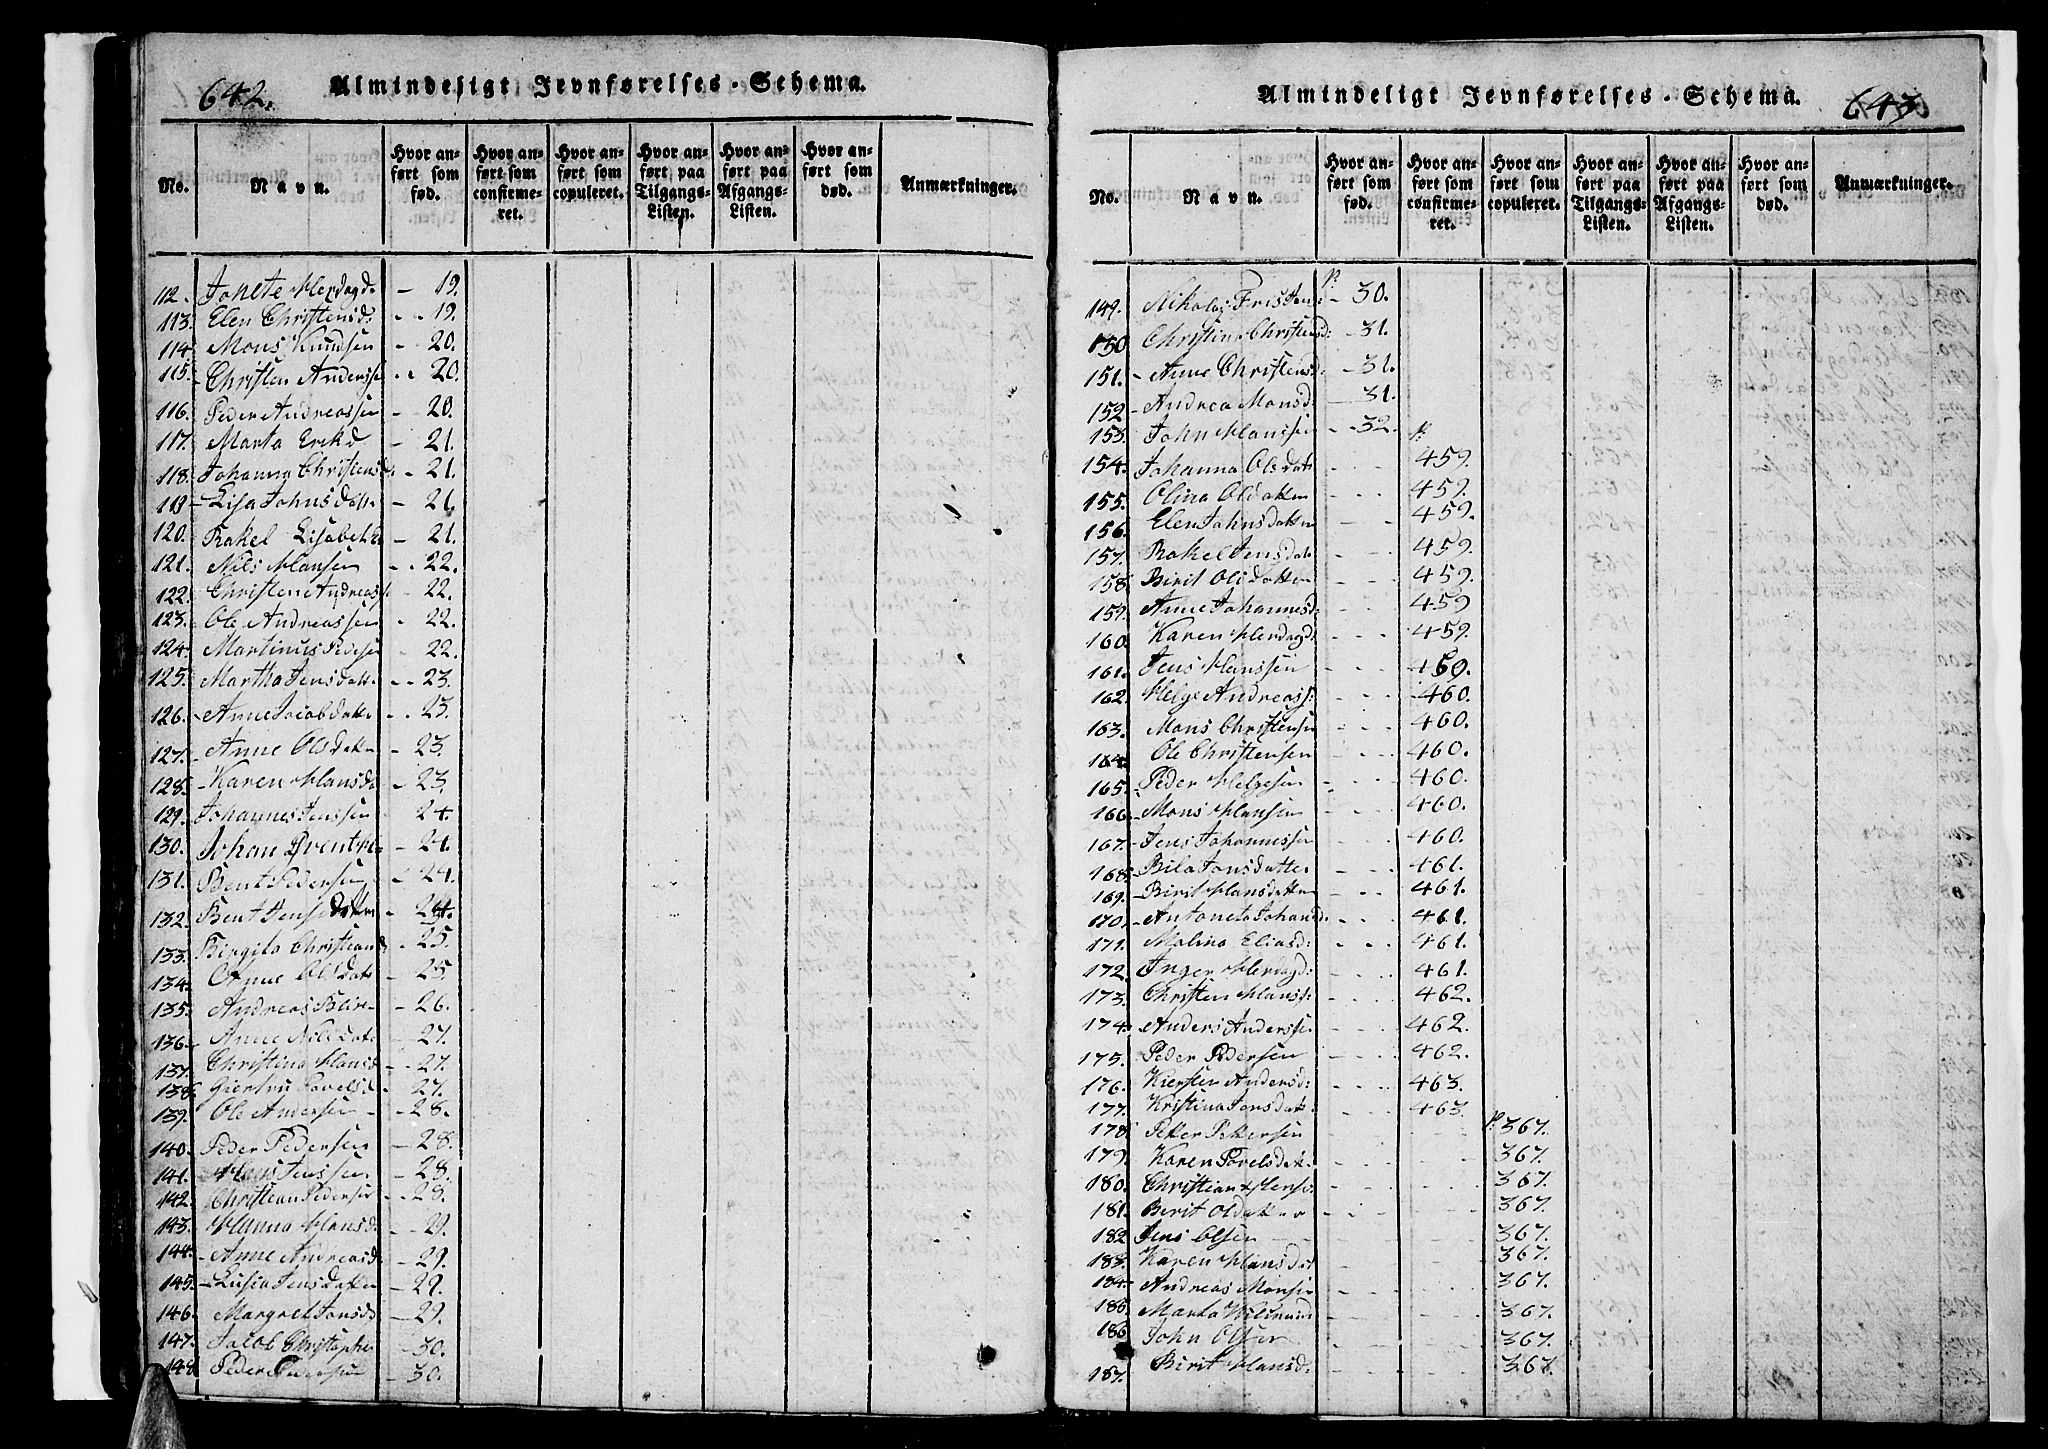 642.
Almindeligt Jevnførelses-Schema.
No. Navn. Hvor anført som fød. Hvor anført som confirmeret. Hvor anført som copuleret. Hvor anført paa Tilgangs-Listen. Hvor anført paa Afgangs-Listen. Hvor anført som død. Anmærkninger.
112. Johete Herdagd. - 19.
113. Elen Christensd: - - 19.
114. Mons Knudsen - 20.
115. Christen Anderss - - 20.
116. Peder Andreassen - 20.
117. Marta Erikd - 21.
118. Johanna Christensd: - 21.
119 Lisa Johnsdatt. - 21.
120. Rakel Lisabet - 21.
121. Nils Hansen - - 22.
122. Christen Andreass - 22.
123. Ole Andreassen - 22.
124. Martinus Pedersen - 22.
125. Martha Jensdatt. - - 23.
126. Anne Jacobdatt - - 23.
127. Anne Olsdatter - 23.
128. Karen Hansda - 23.
129. Johannes Jenssen - 24.
130. Johan - 24.
131. Bent Pedersen - 24.
132. Bent Jensdatter - 24.
133. Birgita Christians - 25.
134. Anne Olsdatt - 25.
135. Andreas - 26.
136. Anne Nilsdatt - 27.
137. Christina Hansd - - 27.
138. Giertru Povelsd - 27.
139. Ole Andersen - - 28.
140. Peder Pedersen - 28.
141. Hans Jenssen - 28.
142. Christian Pedersen - - 28.
143. Hanna Hansd. - 29.
144. Anne Andreasd - 29.
145. Lusia Jensdatter - 29.
146. Margret Jonsd - 29.
147. Jacob Christophe - 30.
148. Peder Pedersen - 30.
Almindeligt Jevnførelses-Schema.
643
No. Navn. Hvor anført som fød. Hvor anført som confirmeret. Hvor anført som copuleret. Hvor anført paa Tilgangs-Listen. Hvor anført paa Afgangs-Listen. Hvor anført som død. Anmærkninger.
149. Nikolaj p. - 30.
150 Christina Christensd: - 31.
151. Anne Christensd: - 31.
152 Andrea Monsd - 31.
153. John Hanssen - - 32. p.
154. Johanna Olsdatt 459.
155. Olina Oldatter 459.
156. Elen Johnsdatter 459.
157. Rakel Jensdat 459.
158. Birit Olsdatter 459.
159. Anne Johannesd: 459
160. Karen Herdagd: 459.
161. Jens Hanssen 460.
162. Helge Andreass: 460.
163. Mons Christensen 460.
164. Ole Christensen 460.
165. Peder Helgesen 460.
166. Mons Hansen 460.
167. Jens Johannessen 460.
168. Jonsdatter 461.
169. Birit Hansdatter 461.
170. Antonete Johansd: 461.
171. Malina Eliasd: 461.
172. Inger Herdagd: 461.
173. Christen Hanss: 462.
174. Anders Anderssen 462.
175. Peder Pedersen 462.
176. Kiersten Andersd: 463.
177. Kristina Jonsdatt: 463.
178. Petter Pettersen p. 367.
179. Karen Povelsdatt. 367.
180. Christian Hense 367.
181. Berit Oldatter 367.
182 Jens Olsen 367.
183. Karen Hansdat 367.
184. Andreas Monsen 367.
185 Marta 367.
186 John Olsen 367.
187. Birit Hansd. 367.